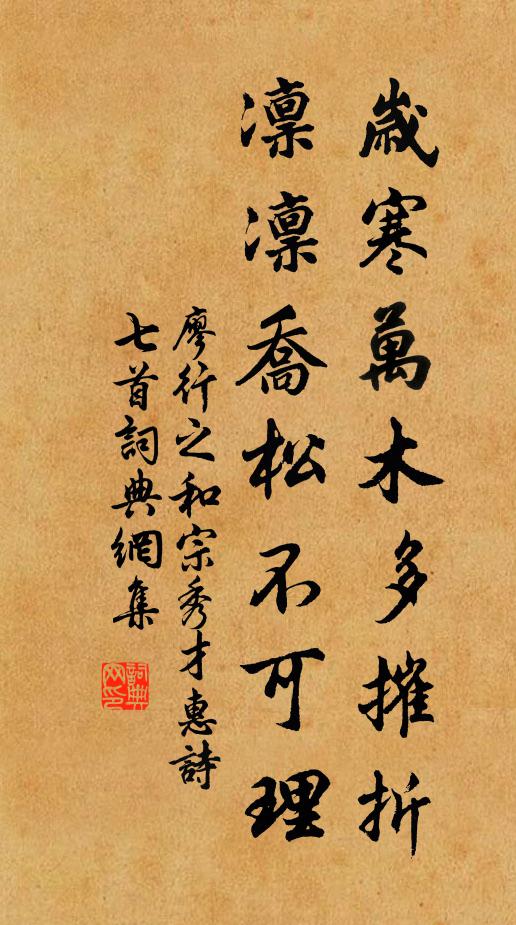 歲寒萬木多摧折
凛凛喬松不可理
廖行之和宗秀才惠詩
七首詞典網集
詞典网印